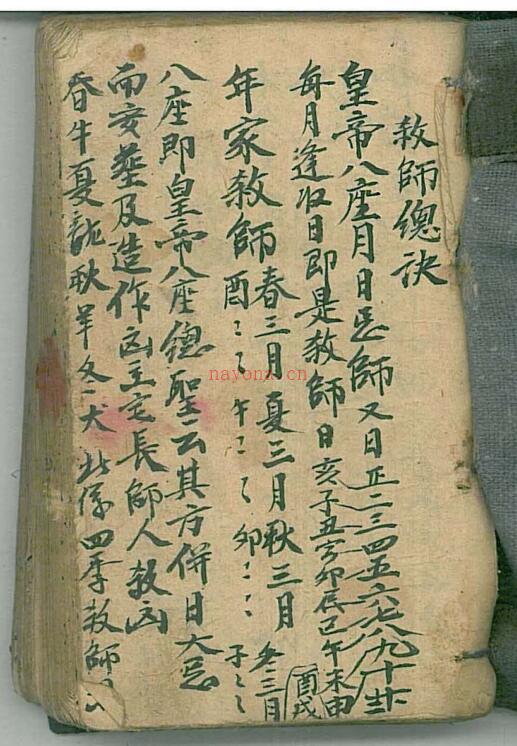 殺師總訣
皇帝八座月日忌師又日正二三四五六七八九十
每月逢收日即是殺師日亥子丑寅卯辰巳午未申
酉戌
年家殺師春三月夏三月秋三月冬三月
酉午卯子
八座即皇帝八座總聖云其方併日大忌
而安葬及造作凶主宅長師人殺凶
春牛夏龍秋羊冬犬此係四季殺師
nayona.cn